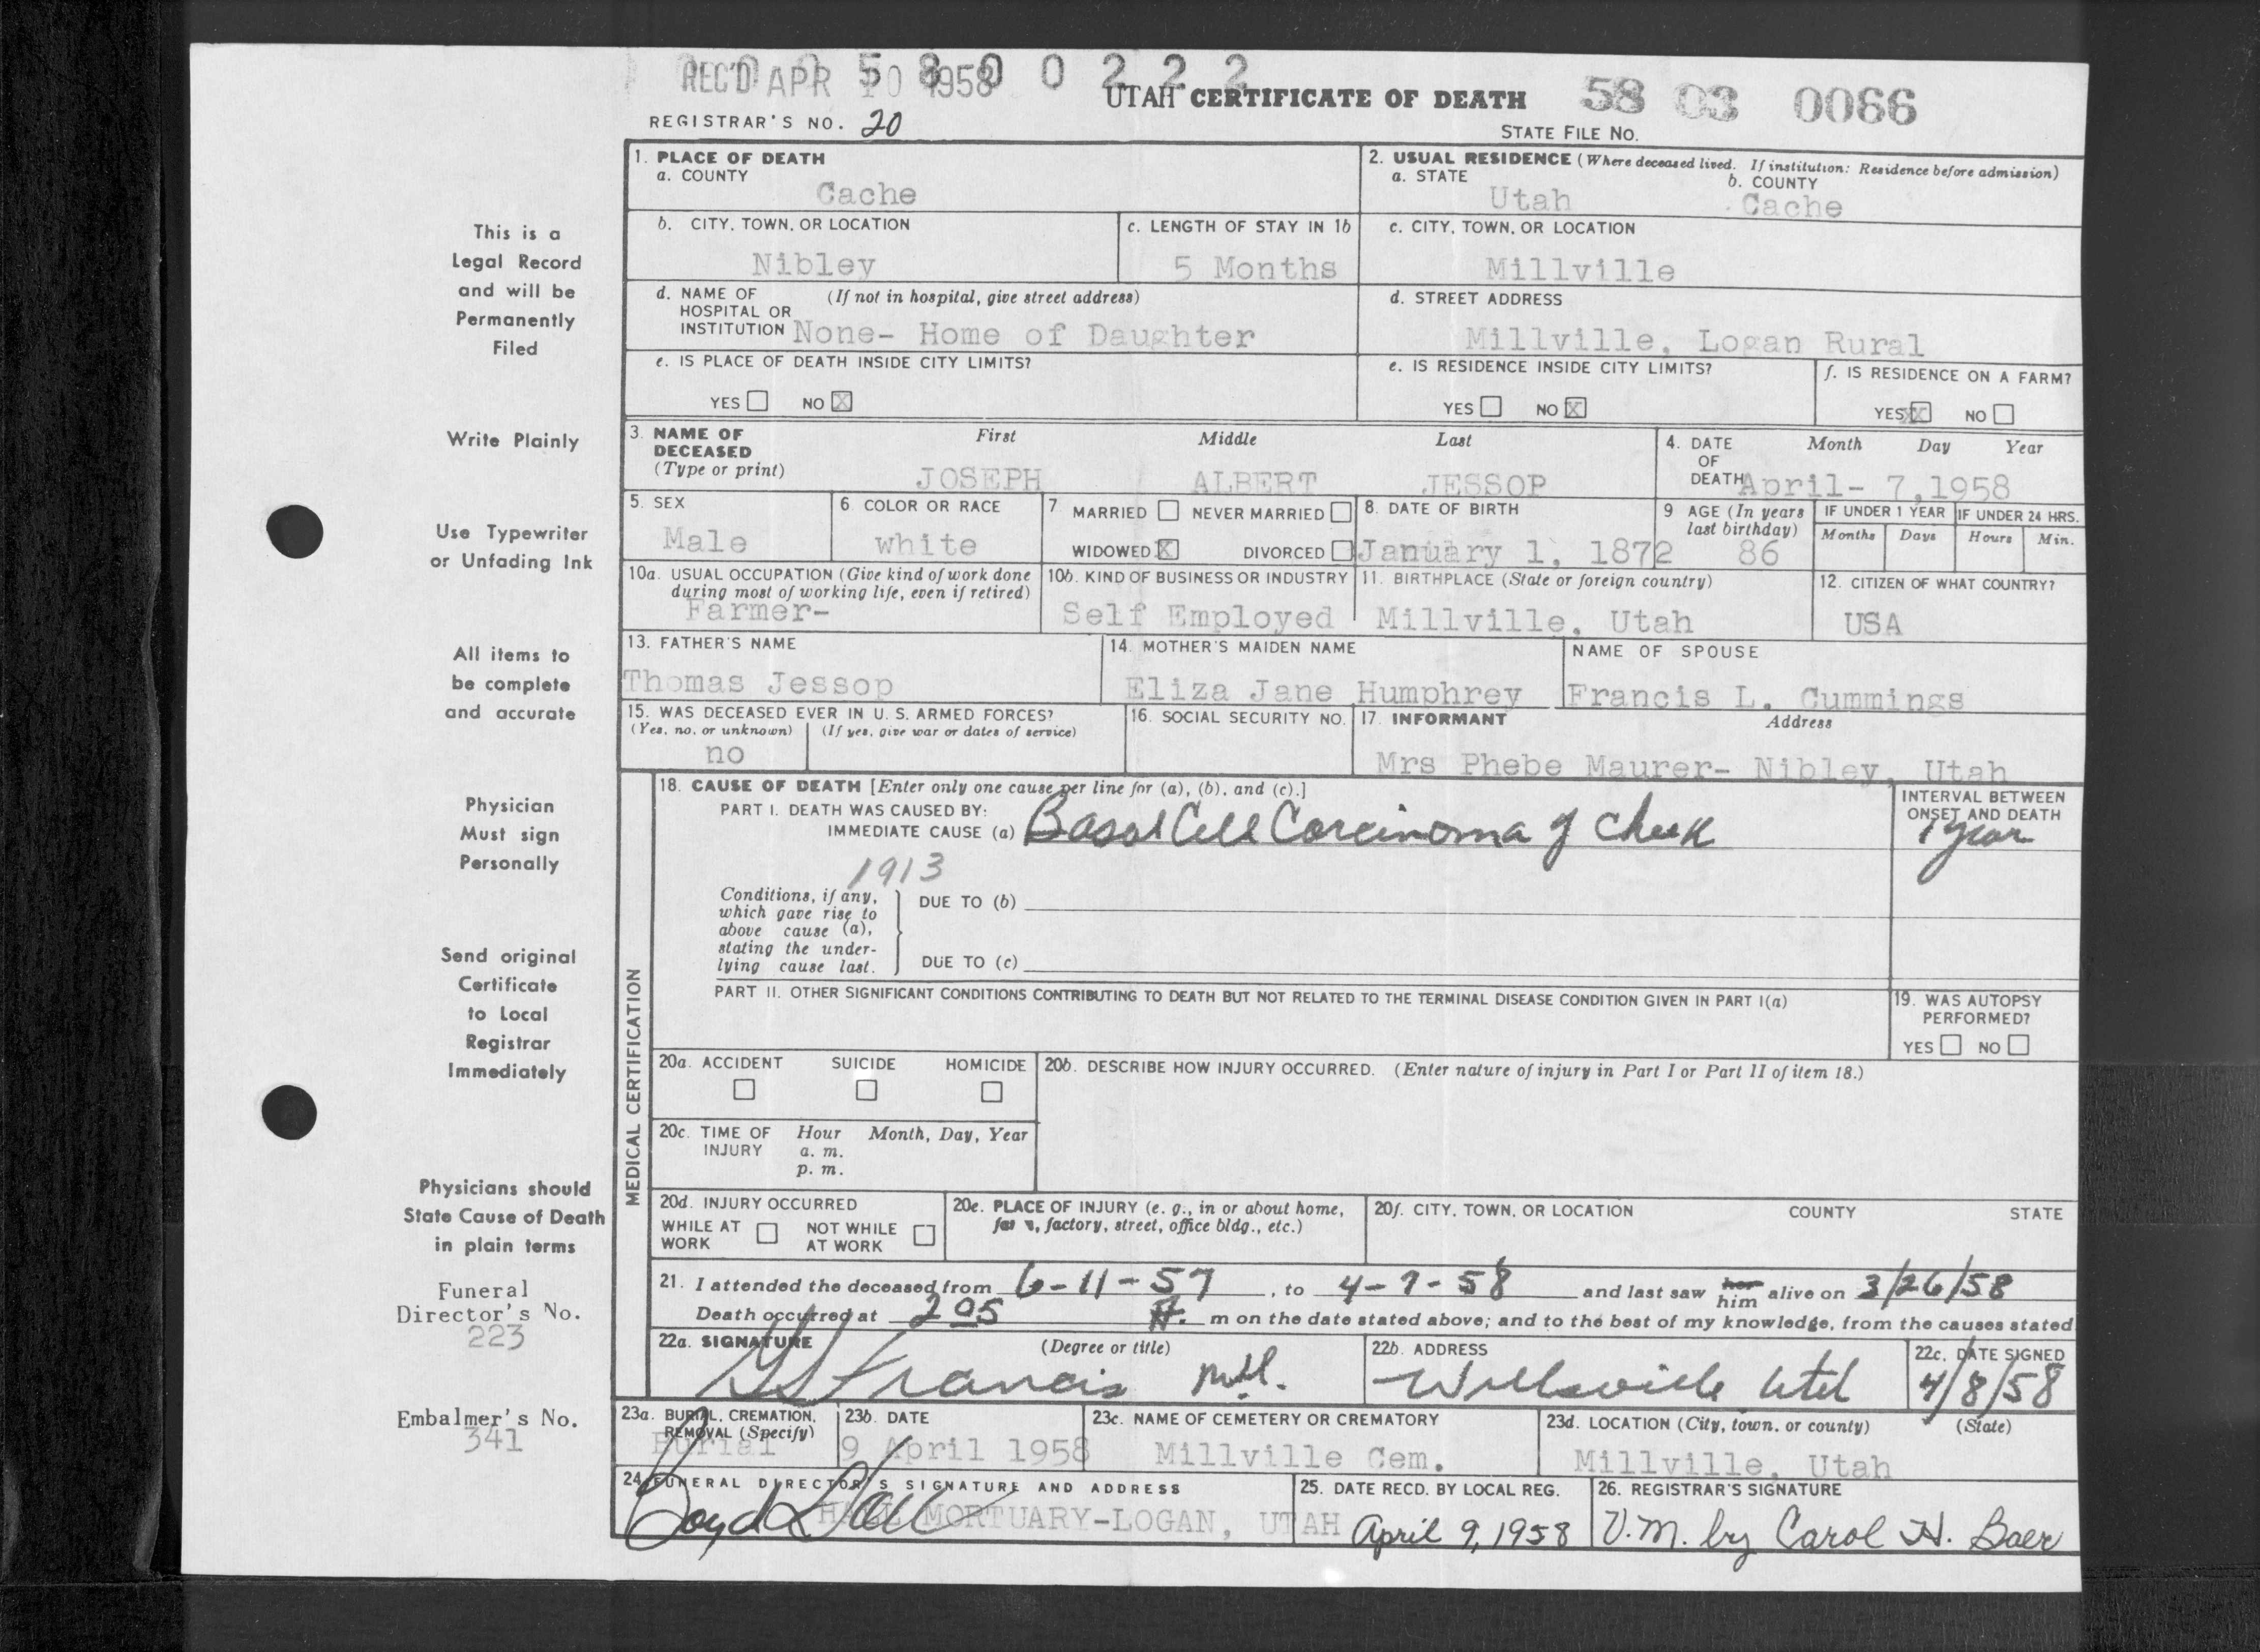 REC'D APR 10 1958
5 8 0 0 2 2 2
UTAH CERTIFICATE OF DEATH
58 03 0066
REGISTRAR'S NO. 20
STATE FILE No.
This is a
Legal Record
and will be
Permanently
Filed
Write Plainly
Use Typewriter
or Unfading Ink
All items to
be complete
and accurate
Physician
Must sign
Personally
Send original
Certificate
to Local
Registrar
Immediately
Physicians should
State Cause of Death
in plain terms
Funeral
Director's No.
223
Embalmer's No.
341
1. PLACE OF DEATH
a. COUNTY
Cache
2. USUAL RESIDENCE (Where deceased lived. If institution: Residence before admission)
a. STATE
Utah
b. COUNTY
Cache
b. CITY, TOWN, OR LOCATION
Nibley
c. LENGTH OF STAY IN 1b
5 Months
c. CITY, TOWN, OR LOCATION
Millville
d. NAME OF (If not in hospital, give street address)
HOSPITAL OR
INSTITUTION None- Home of Daughter
d. STREET ADDRESS
Millville, Logan Rural
e. IS PLACE OF DEATH INSIDE CITY LIMITS?
YES NO X
e. IS RESIDENCE INSIDE CITY LIMITS?
YES NO X
f. IS RESIDENCE ON A FARM?
YES XX NO
3. NAME OF DECEASED
(Type or print)
First Middle Last
JOSEPH ALBERT JESSOP
4. DATE OF DEATH
Month Day Year
April- 7,1958
5. SEX
Male
6 COLOR OR RACE
white
7 MARRIED NEVER MARRIED
WIDOWED X DIVORCED
8. DATE OF BIRTH
January 1, 1872
9 AGE (In years
last birthday)
86
IF UNDER 1 YEAR
Months Days
IF UNDER 24 HRS.
Hours Min.
10a. USUAL OCCUPATION (Give kind of work done
during most of working life, even if retired)
Farmer-
10b. KIND OF BUSINESS OR INDUSTRY
Self Employed
11. BIRTHPLACE (State or foreign country)
Millville, Utah
12. CITIZEN OF WHAT COUNTRY?
USA
13. FATHER'S NAME
Thomas Jessop
14. MOTHER'S MAIDEN NAME
Eliza Jane Humphrey
NAME OF SPOUSE
Francis L. Cummings
15. WAS DECEASED EVER IN U. S. ARMED FORCES?
(Yes, no, or unknown) (If yes, give war or dates of service)
no
16. SOCIAL SECURITY NO.
17. INFORMANT Address
Mrs Phebe Maurer- Nibley, Utah
MEDICAL CERTIFICATION
18. CAUSE OF DEATH [Enter only one cause per line for (a), (b), and (c).]
PART I. DEATH WAS CAUSED BY:
IMMEDIATE CAUSE (a) Basal Cell Carcinoma of Cheek
INTERVAL BETWEEN
ONSET AND DEATH
1 year
1913
Conditions, if any,
which gave rise to
above cause (a),
stating the under-
lying cause last.
DUE TO (b)
DUE TO (c)
PART II. OTHER SIGNIFICANT CONDITIONS CONTRIBUTING TO DEATH BUT NOT RELATED TO THE TERMINAL DISEASE CONDITION GIVEN IN PART I(a)
19. WAS AUTOPSY
PERFORMED?
YES NO
20a. ACCIDENT SUICIDE HOMICIDE
20b. DESCRIBE HOW INJURY OCCURRED. (Enter nature of injury in Part I or Part II of item 18.)
20c. TIME OF INJURY
Hour Month, Day, Year
a. m.
p. m.
20d. INJURY OCCURRED
WHILE AT WORK NOT WHILE AT WORK
20e. PLACE OF INJURY (e. g., in or about home,
factory, street, office bldg., etc.)
20f. CITY, TOWN, OR LOCATION COUNTY STATE
21. I attended the deceased from 6-11-57, to 4-7-58 and last saw her him alive on 3/26/58
Death occurred at 2 05 m on the date stated above; and to the best of my knowledge, from the causes stated
22a. SIGNATURE (Degree or title)
Francis M.D.
22b. ADDRESS
Wellsville Utah
22c. DATE SIGNED
4/8/58
23a. BURIAL, CREMATION,
REMOVAL (Specify)
Burial
23b. DATE
9 April 1958
23c. NAME OF CEMETERY OR CREMATORY
Millville Cem.
23d. LOCATION (City, town, or county) (State)
Millville, Utah
24. FUNERAL DIRECTOR'S SIGNATURE AND ADDRESS
Boyd L Hall
HALL MORTUARY-LOGAN, UTAH
25. DATE RECD. BY LOCAL REG.
April 9, 1958
26. REGISTRAR'S SIGNATURE
V.M. by Carol H. Baer